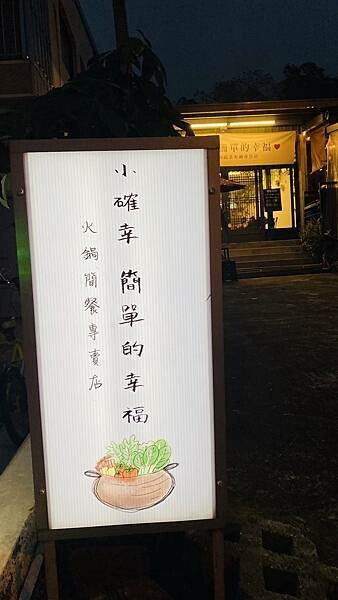 小確幸 簡單的幸福
火鍋簡餐專賣店
簡單的幸福